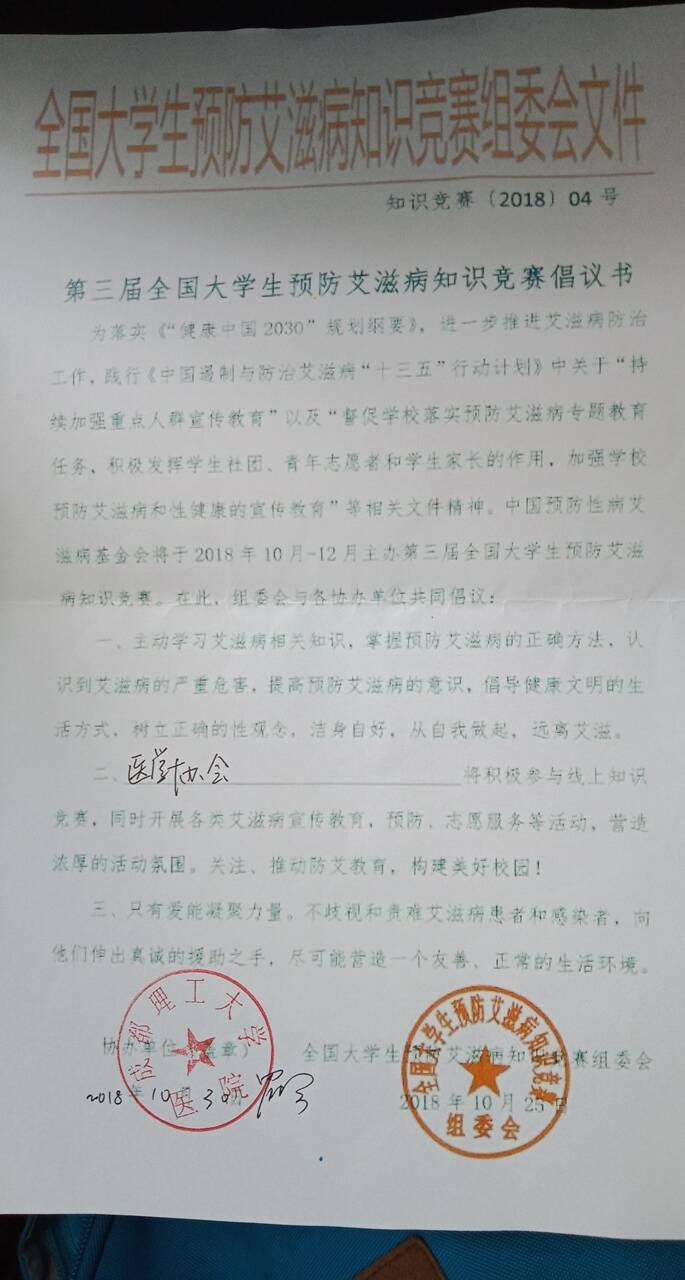 全国大学生预防艾滋病知识竞赛组委会文件
知识竞赛〔2018〕04 号
第三届全国大学生预防艾滋病知识竞赛倡议书
为落实《“健康中国2030”规划纲要》，进一步推进艾滋病防治
工作，践行《中国遏制与防治艾滋病“十三五”行动计划》中关于“持
续加强重点人群宣传教育”以及“督促学校落实预防艾滋病专题教育
任务，积极发挥学生社团、青年志愿者和学生家长的作用，加强学校
预防艾滋病和性健康的宣传教育”等相关文件精神。中国预防性病艾
滋病基金会将于 2018 年 10 月-12 月主办第三届全国大学生预防艾滋
病知识竞赛。在此，组委会与各协办单位共同倡议：
一、主动学习艾滋病相关知识，掌握预防艾滋病的正确方法，认
识到艾滋病的严重危害，提高预防艾滋病的意识，倡导健康文明的生
活方式，树立正确的性观念，洁身自好，从自我做起，远离艾滋。
二、医学协会将积极参与线上知识
竞赛，同时开展各类艾滋病宣传教育，预防、志愿服务等活动，营造
浓厚的活动氛围。关注、推动防艾教育，构建美好校园！
三、只有爱能凝聚力量。不歧视和责难艾滋病患者和感染者，向
他们伸出真诚的援助之手，尽可能营造一个友善、正常的生活环境。
协办单位（盖章） 全国大学生预防艾滋病知识竞赛组委会
2018 年 10 月 30 2018 年 10 月 25 日
成都理工大学
医院
全国大学生预防艾滋病知识竞赛
组委会